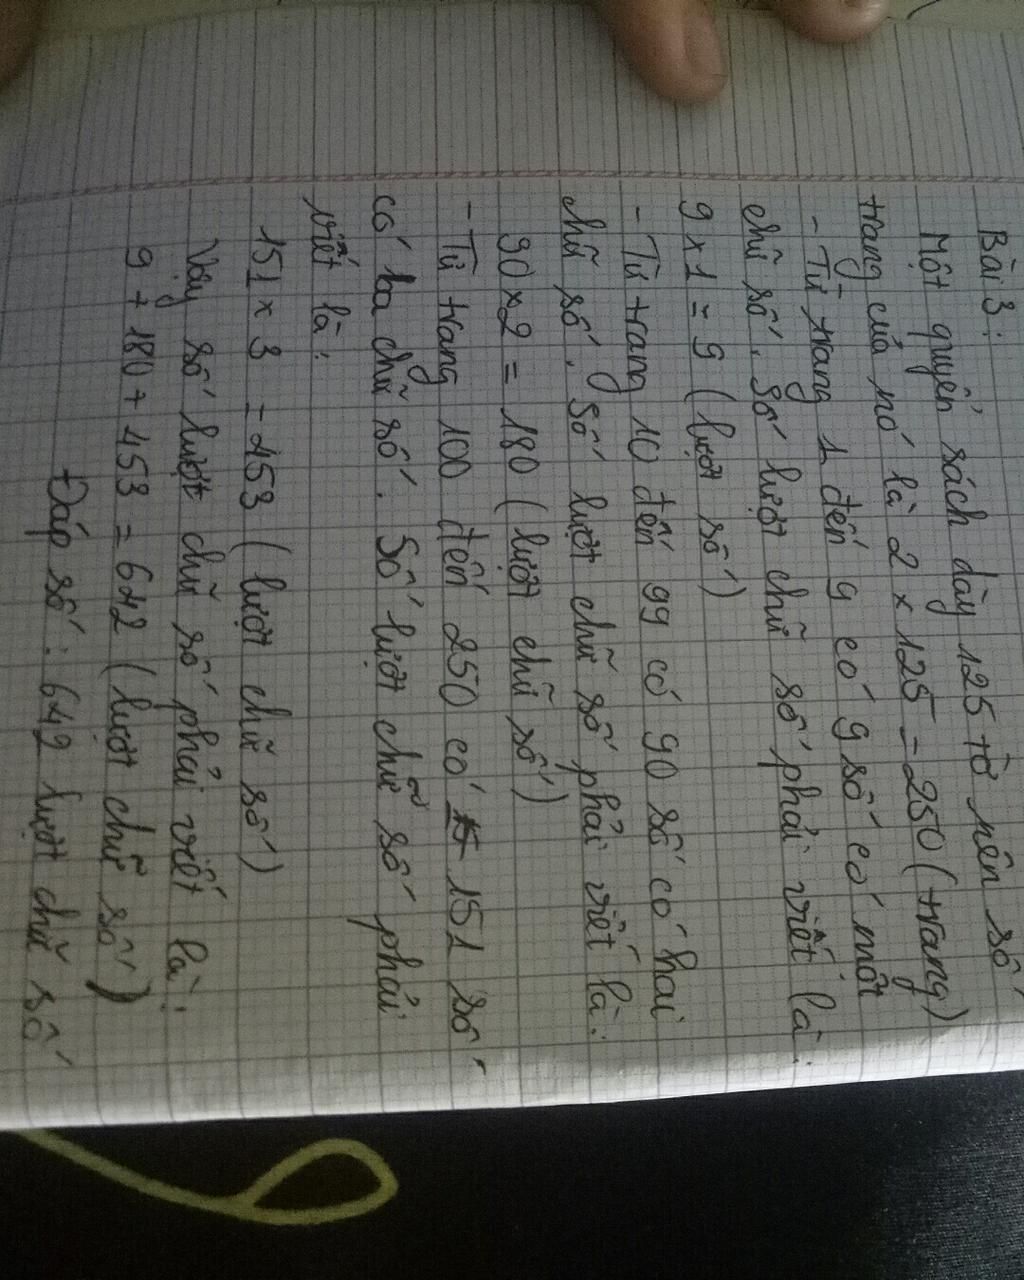 Bài 3:
Một quyển sách dày 125 tờ nên số
trang của nó là 2 x 125 = 250 (trang)
- Từ trang 1 đến 9 có 9 số có một
chữ số. Số lượt chữ số phải viết là:
9 x 1 = 9 (lượt số)
- Từ trang 10 đến 99 có 90 số có hai
chữ số. Số lượt chữ số phải viết là:
90 x 2 = 180 (lượt chữ số)
- Từ trang 100 đến 250 có 151 số
có ba chữ số. Số lượt chữ số phải
viết là:
151 x 3 = 453 (lượt chữ số)
Vậy số lượt chữ số phải viết là:
9 + 180 + 453 = 642 (lượt chữ số)
Đáp số: 642 lượt chữ số